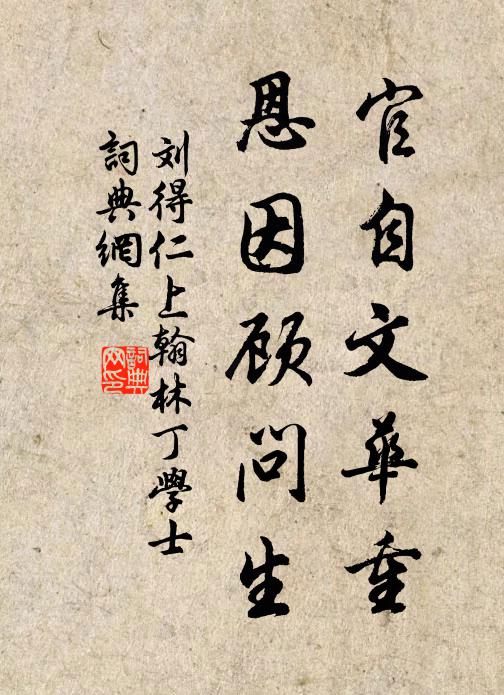 官自文華重
恩因顾問生
刘得仁上翰林丁學士
詞典網集
詞典
网印